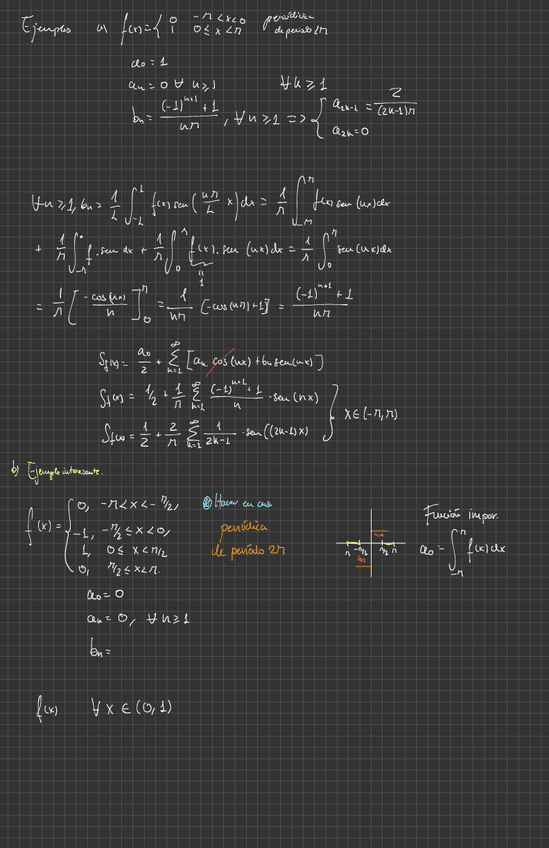 Ejemplos a) f(x) = { 0 -π < x < 0 periódica
1 0 ≤ x < π de periodo 2π
a₀ = 1
aₙ = 0 ∀ n ≥ 1 ∀ k ≥ 1
bₙ = ((-1)ⁿ⁺¹ + 1)/(nπ), ∀ n ≥ 1 => { a₂ₖ₋₁ = 2/((2k-1)π)
a₂ₖ = 0
∀ n ≥ 1, bₙ = 1/L ∫_{-L}^{L} f(x) sen(nπ/L x) dx = 1/π ∫_{-π}^{π} f(x) sen(nx) dx
+ 1/π ∫_{-π}^{0} f · sen dx + 1/π ∫_{0}^{π} f(x) · sen(nx) dx = 1/π ∫_{0}^{π} sen(nx) dx
1
= 1/π [-cos(nx)/n]_{0}^{π} = 1/(nπ) [-cos(nπ)+1] = ((-1)ⁿ⁺¹ + 1)/(nπ)
S_f(x) = a₀/2 + Σ_{n=1}^{∞} [aₙ cos(nx) + bₙ sen(nx)]
S_f(x) = 1/2 + 1/π Σ_{n=1}^{∞} ((-1)ⁿ⁺¹ + 1)/n · sen(nx)
S_f(x) = 1/2 + 2/π Σ_{k=1}^{∞} 1/(2k-1) · sen((2k-1)x) } x ∈ (-π, π)
b) Ejemplo interesante.
f(x) = { 0, -π < x < -π/2,
-1, -π/2 ≤ x < 0,
1, 0 ≤ x < π/2
0, π/2 ≤ x < π.
Hacer en casa
periódica
de periodo 2π
π -π/2 π/2 π
Función impar.
a₀ = ∫_{-π}^{π} f(x) dx
a₀ = 0
aₙ = 0, ∀ n ≥ 1
bₙ =
f(x) ∀ x ∈ (0, 1)